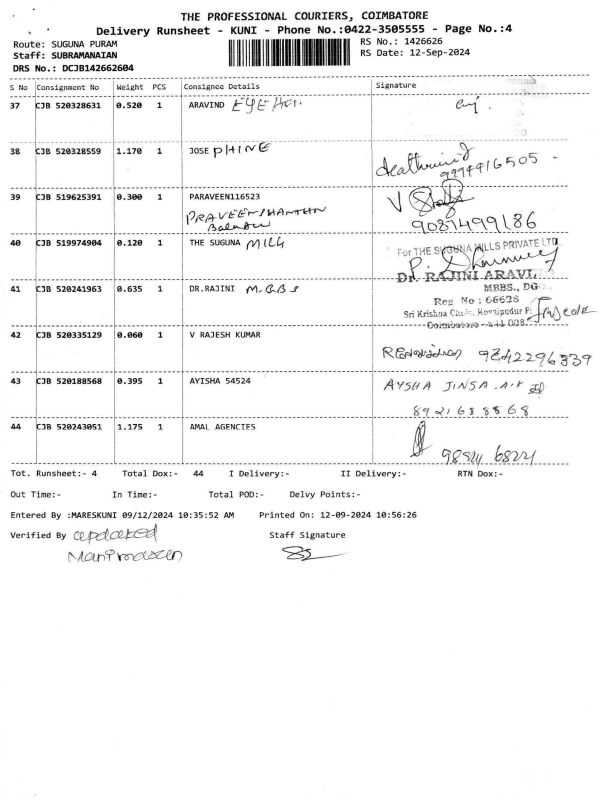 THE PROFESSIONAL COURIERS, COIMBATORE
Delivery Runsheet - KUNI - Phone No.:0422-3505555 - Page No.:4
Route: SUGUNA PURAM RS No.: 1426626
Staff: SUBRAMANAIAN RS Date: 12-Sep-2024
DRS No.: DCJB142662604
S No Consignment No Weight PCS Consignee Details Signature
37 CJB 520328631 0.520 1 ARAVIND EYE
38 CJB 520328559 1.170 1 JOSEPHINE
39 CJB 519625391 0.300 1 PARAVEEN116523
PRAVEEN
9087499186
40 CJB 519974904 0.120 1 THE SUGUNA MILL
For THE SUGUNA MILLS PRIVATE LTD.
41 CJB 520241963 0.635 1 DR.RAJINI M.B.B.S
Dr. RAJINI ARAVI
MBBS., DGO.,
Reg No : 66628
Sri Krishna Clinic,
Coimbatore - 641 008
42 CJB 520335129 0.060 1 V RAJESH KUMAR
9842296339
43 CJB 520188568 0.395 1 AYISHA 54524
AYSHA JINSA.A.Y
8921688868
44 CJB 520243051 1.175 1 AMAL AGENCIES
Tot. Runsheet:- 4 Total Dox:- 44 I Delivery:- II Delivery:- RTN Dox:-
Out Time:- In Time:- Total POD:- Delvy Points:-
Entered By :MARESKUNI 09/12/2024 10:35:52 AM Printed On: 12-09-2024 10:56:26
Verified By updated Staff Signature